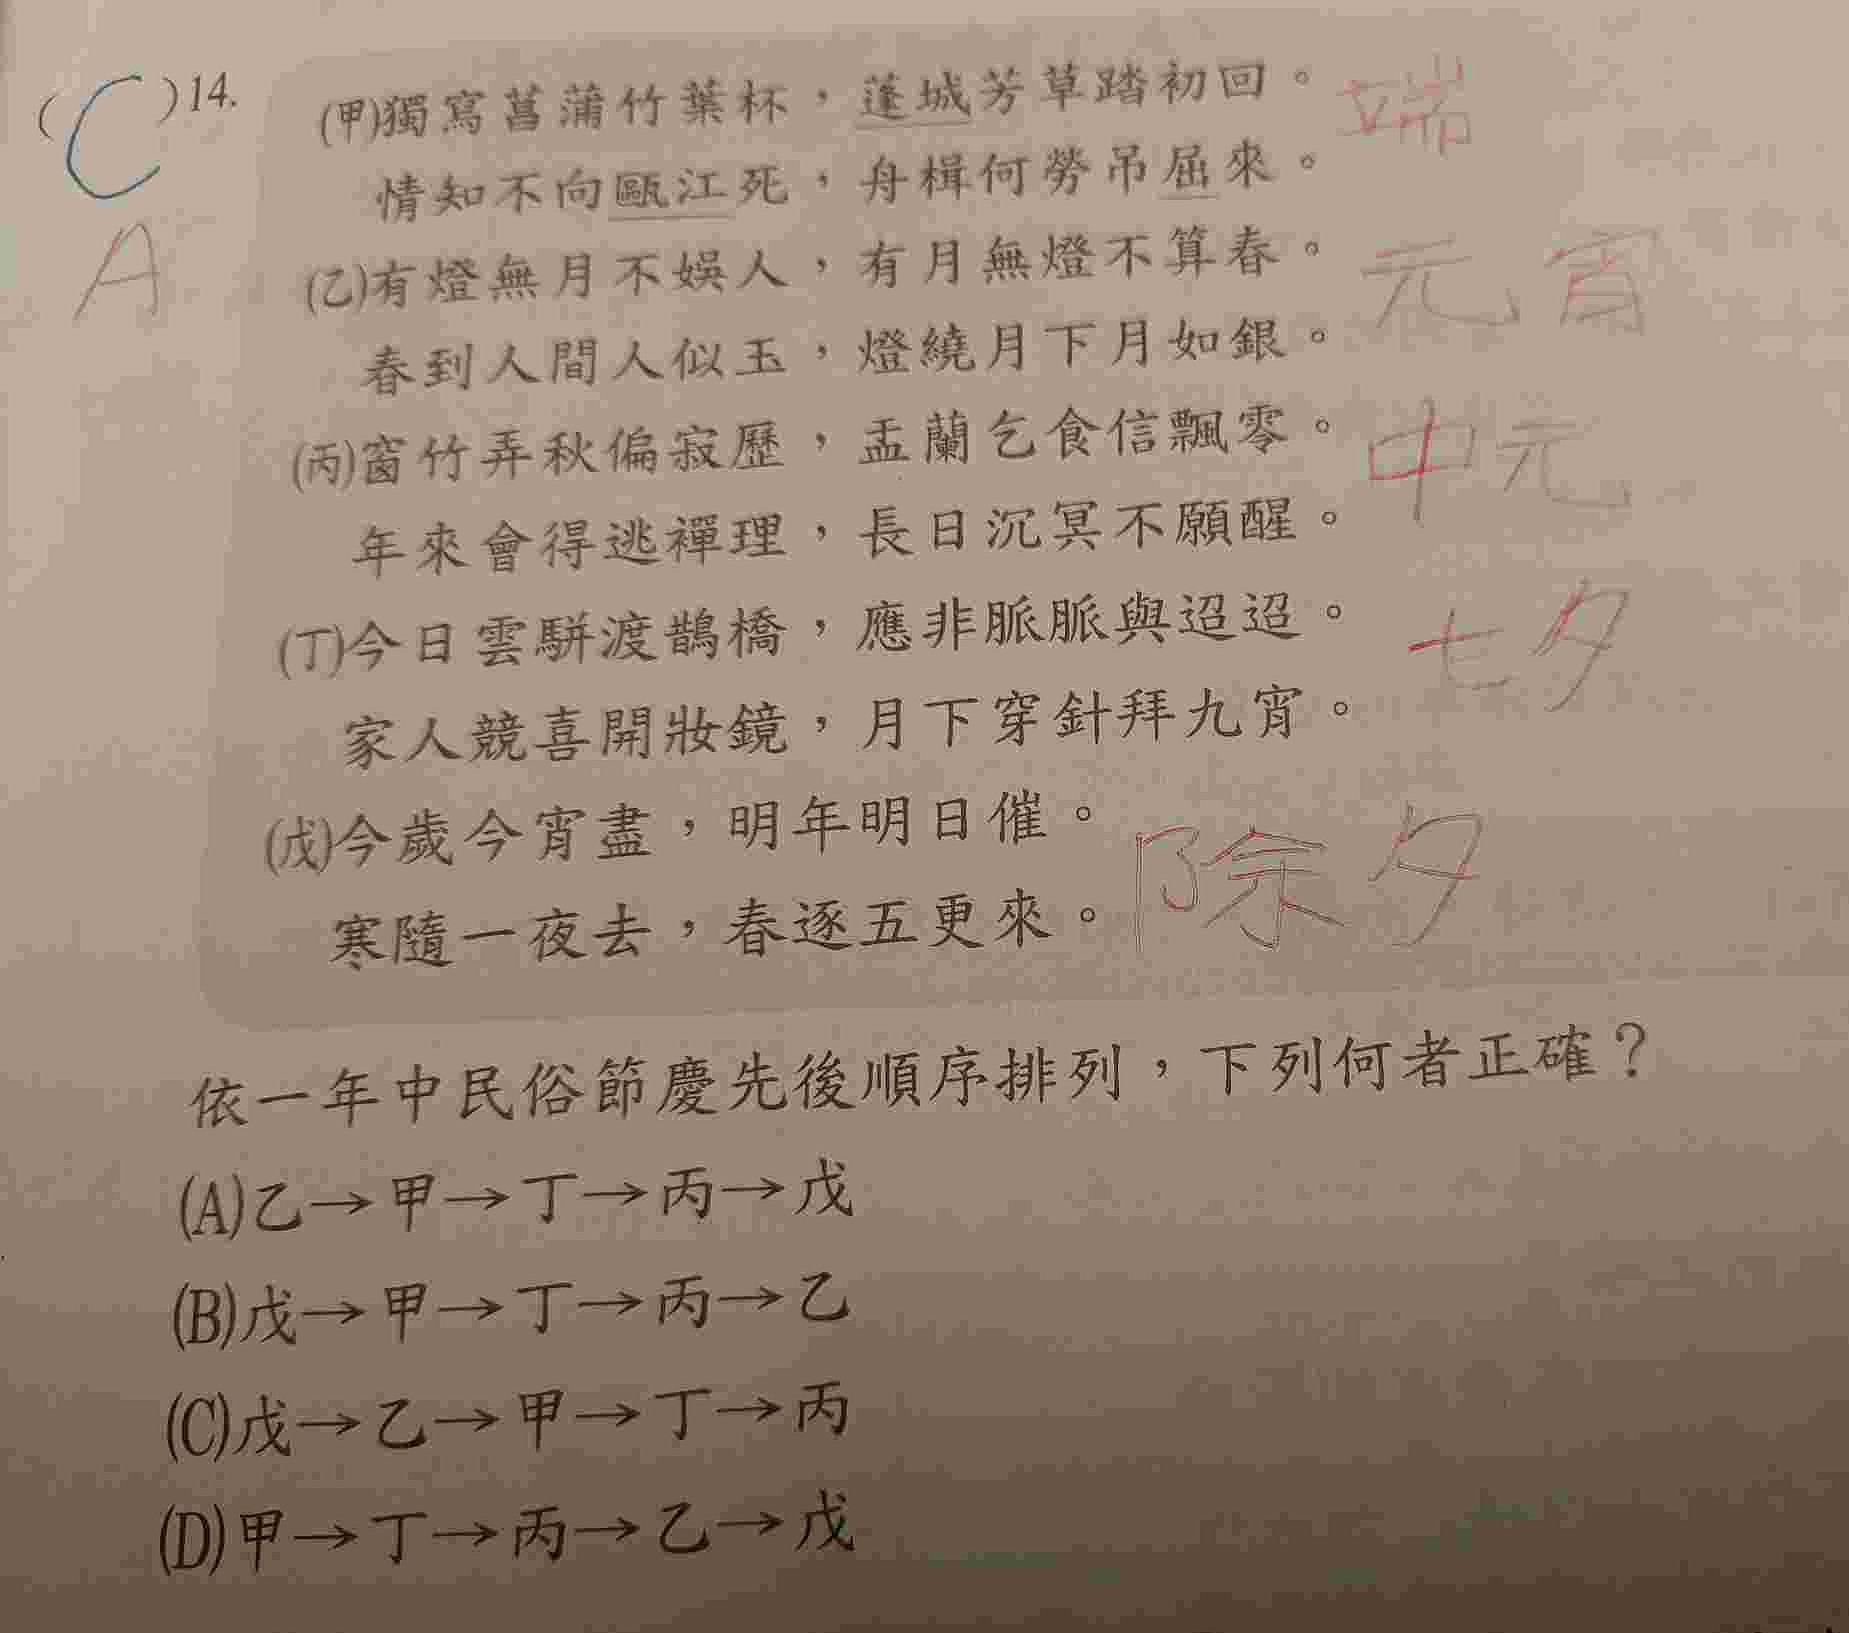 ( C )14.
(甲)獨寫菖蒲竹葉杯，蓬城芳草踏初回。 端
情知不向甌江死，舟楫何勞吊屈來。
A
(乙)有燈無月不娛人，有月無燈不算春。 元宵
春到人間人似玉，燈繞月下月如銀。
(丙)窗竹弄秋偏寂歷，盂蘭乞食信飄零。 中元
年來會得逃禪理，長日沉冥不願醒。
(丁)今日雲駢渡鵲橋，應非脈脈與迢迢。 七夕
家人競喜開妝鏡，月下穿針拜九宵。
(戊)今歲今宵盡，明年明日催。 除夕
寒隨一夜去，春逐五更來。
依一年中民俗節慶先後順序排列，下列何者正確？
(A)乙→甲→丁→丙→戊
(B)戊→甲→丁→丙→乙
(C)戊→乙→甲→丁→丙
(D)甲→丁→丙→乙→戊